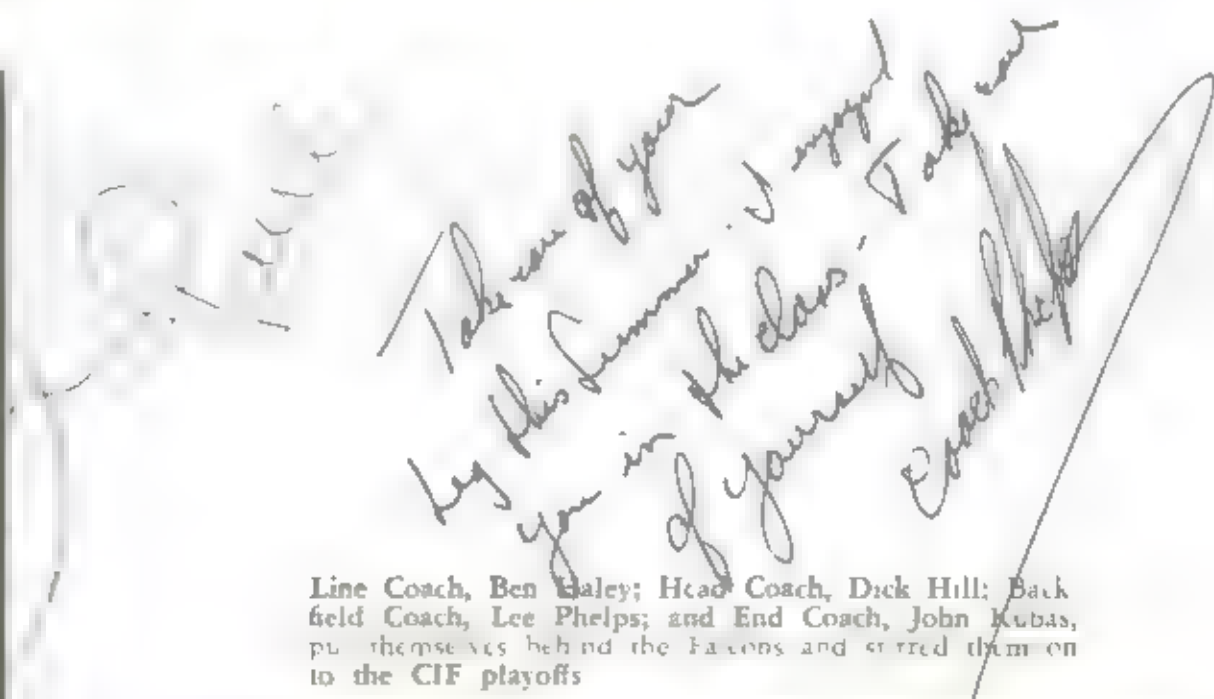 Take care of your
leg this summer. I enjoyed
you in the class. Take care
of yourself
Coach
Line Coach, Ben Haley; Head Coach, Dick Hill; Back
field Coach, Lee Phelps; and End Coach, John Kubas,
put themselves behind the Falcons and stirred them on
to the CIF playoffs